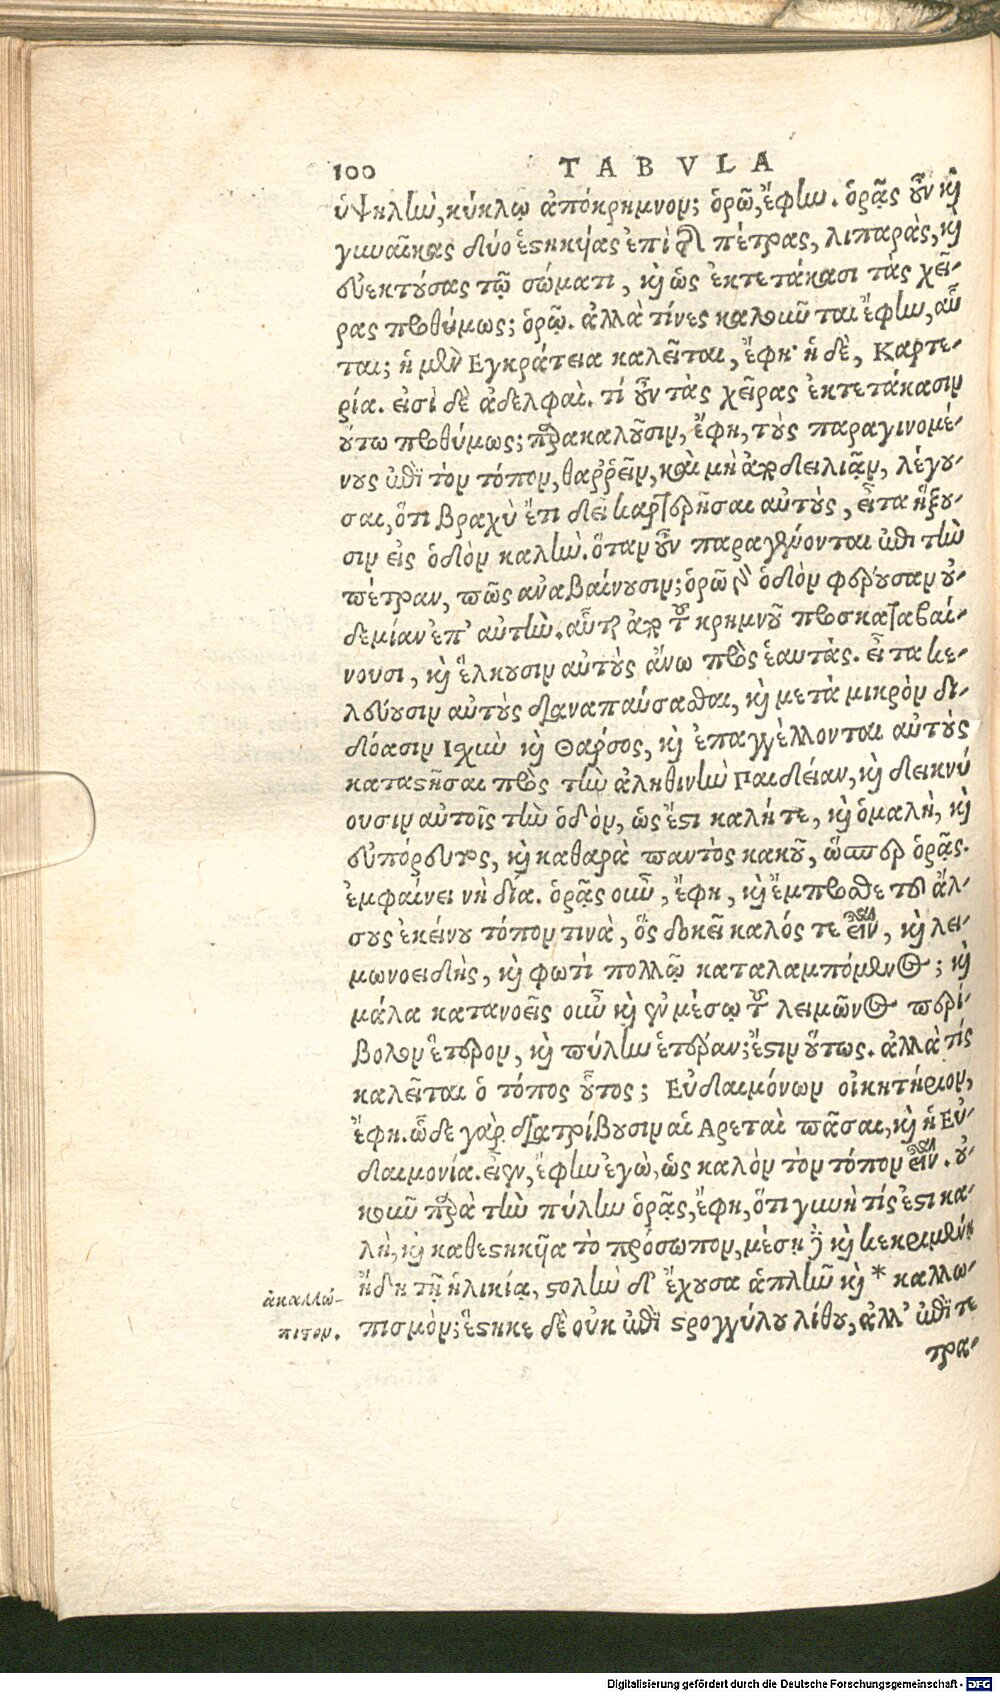 100 TABVLA
ὑψηλὴν, κύκλῳ ἀπόκρημνον; ὁρῶ, ἔφην. ὁρᾷς οὖν καὶ
γυναῖκας δύο ἑστηκῄας ἐπὶ τῆς πέτρας, λιπαρὰς, καὶ
εὐεκτούσας τῷ σώματι, καὶ ὡς ἐκτετάκασι τὰς χεῖ-
ρας προθύμως; ὁρῶ. ἀλλὰ τίνες καλοῦνται ἔφην, αὗ
ται; ἡ μὲν Εγκράτεια καλεῖται, ἔφη· ἡ δὲ, Καρτε-
ρία. εἰσὶ δὲ ἀδελφαὶ. τί οὖν τὰς χεῖρας ἐκτετάκασιν
οὕτω προθύμως; παρακαλοῦσιν, ἔφη, τοὺς παραγινομέ-
νους ἐπὶ τὸν τόπον, θαῤῥεῖν, καὶ μὴ ἀποδειλιᾷν, λέγου-
σαι, ὅτι βραχὺ ἔτι δεῖ καρτερῆσαι αὐτοὺς, εἶτα ἥξου-
σιν εἰς ὁδὸν καλὴν. ὅταν οὖν παραγένονται ἐπὶ τὴν
πέτραν, πῶς αναβαίνουσιν; ὁρῶ γὰρ ὁδὸν φέρουσαν οὐ-
δεμίαν ἐπ' αὐτὴν. αὗται ἀπὸ τοῦ κρημνοῦ προσκαταβαί-
νουσι, καὶ ἕλκουσιν αὐτοὺς ἄνω πρὸς ἑαυτάς. εἶτα κε-
λεύουσιν αὐτοὺς διαναπαύσασθαι, καὶ μετὰ μικρὸν δι-
δόασιν Ισχὺν καὶ Θάρσος, καὶ ἐπαγγέλλονται αὐτοὺς
καταστῆσαι πρὸς τὴν ἀληθινὴν Παιδείαν, καὶ δεικνύ
ουσιν αὐτοῖς τὴν ὁδὸν, ὡς ἔστι καλή τε, καὶ ὁμαλὴ, καὶ
εὐπόρευτος, καὶ καθαρὰ παντὸς κακοῦ, ὥσπερ ὁρᾷς.
ἐμφαίνει νὴ δία. ὁρᾷς οὖν, ἔφη, καὶ ἔμπροσθε τοῦ ἄλ-
σους ἐκείνου τόπον τινὰ, ὃς δοκεῖ καλός τε εἶναι, καὶ λει-
μωνοειδὴς, καὶ φωτὶ πολλῷ καταλαμπόμενος; καὶ
μάλα κατανοεῖς οὖν καὶ ἐν μέσῳ τοῦ λειμῶνος περί-
βολον ἕτερον, καὶ πύλην ἑτέραν; ἔστιν οὕτως. ἀλλὰ τίς
καλεῖται ὁ τόπος οὗτος; Εὐδαιμόνων οἰκητήριον,
ἔφη. ὧδε γὰρ διατρίβουσιν αἱ Αρεταὶ πᾶσαι, καὶ ἡ Εὐ-
δαιμονία. εἶεν, ἔφην ἐγὼ, ὡς καλὸν τὸν τόπον εἶναι. οὐ-
κοῦν παρὰ τὴν πύλην ὁρᾷς, ἔφη, ὅτι γυνὴ τίς ἐστι κα-
λὴ, καὶ καθεστηκῆα τὸ πρόσωπον, μέσῃ δὲ καὶ κεκριμένῃ
ἤδη τῇ ἡλικίᾳ, στολὴν δ' ἔχουσα ἁπλῆν καὶ * καλλω-
πισμὸν; ἕστηκε δὲ οὐκ ἐπὶ στρογγύλου λίθου, ἀλλ' ἐπὶ τε
τρα-
ἀκαλλώ-
πιστον.
Digitalisierung gefördert durch die Deutsche Forschungsgemeinschaft - DFG